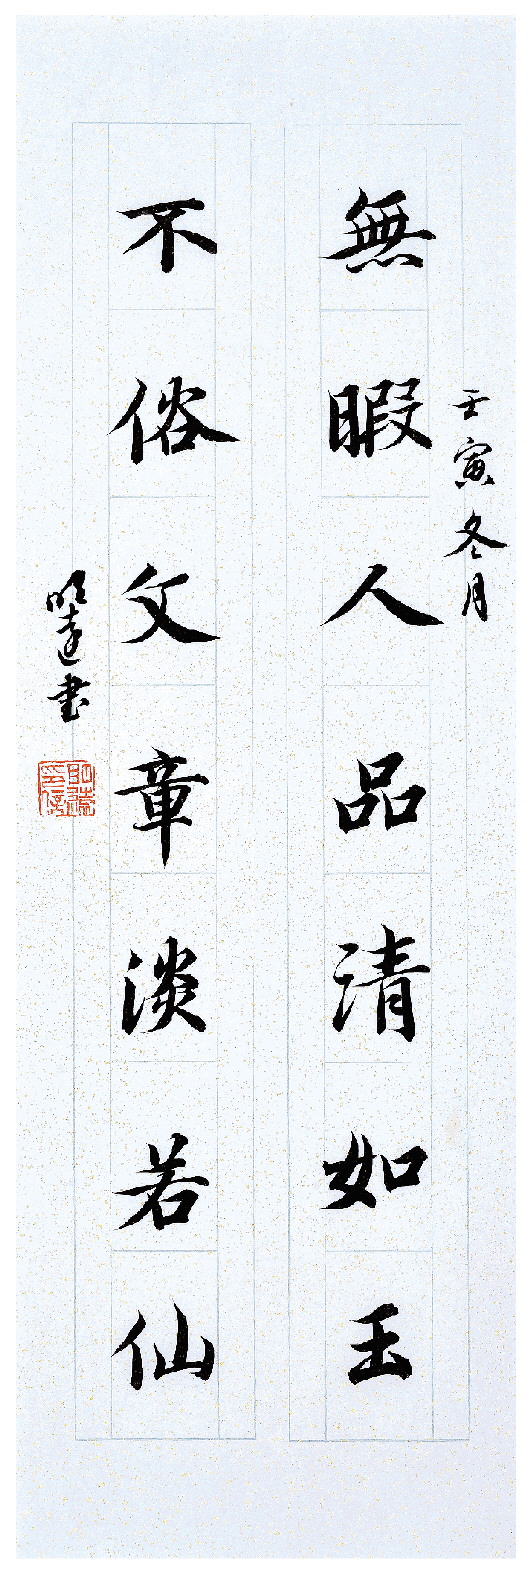 壬寅冬月
無暇人品清如玉
不俗文章淡若仙
明達書